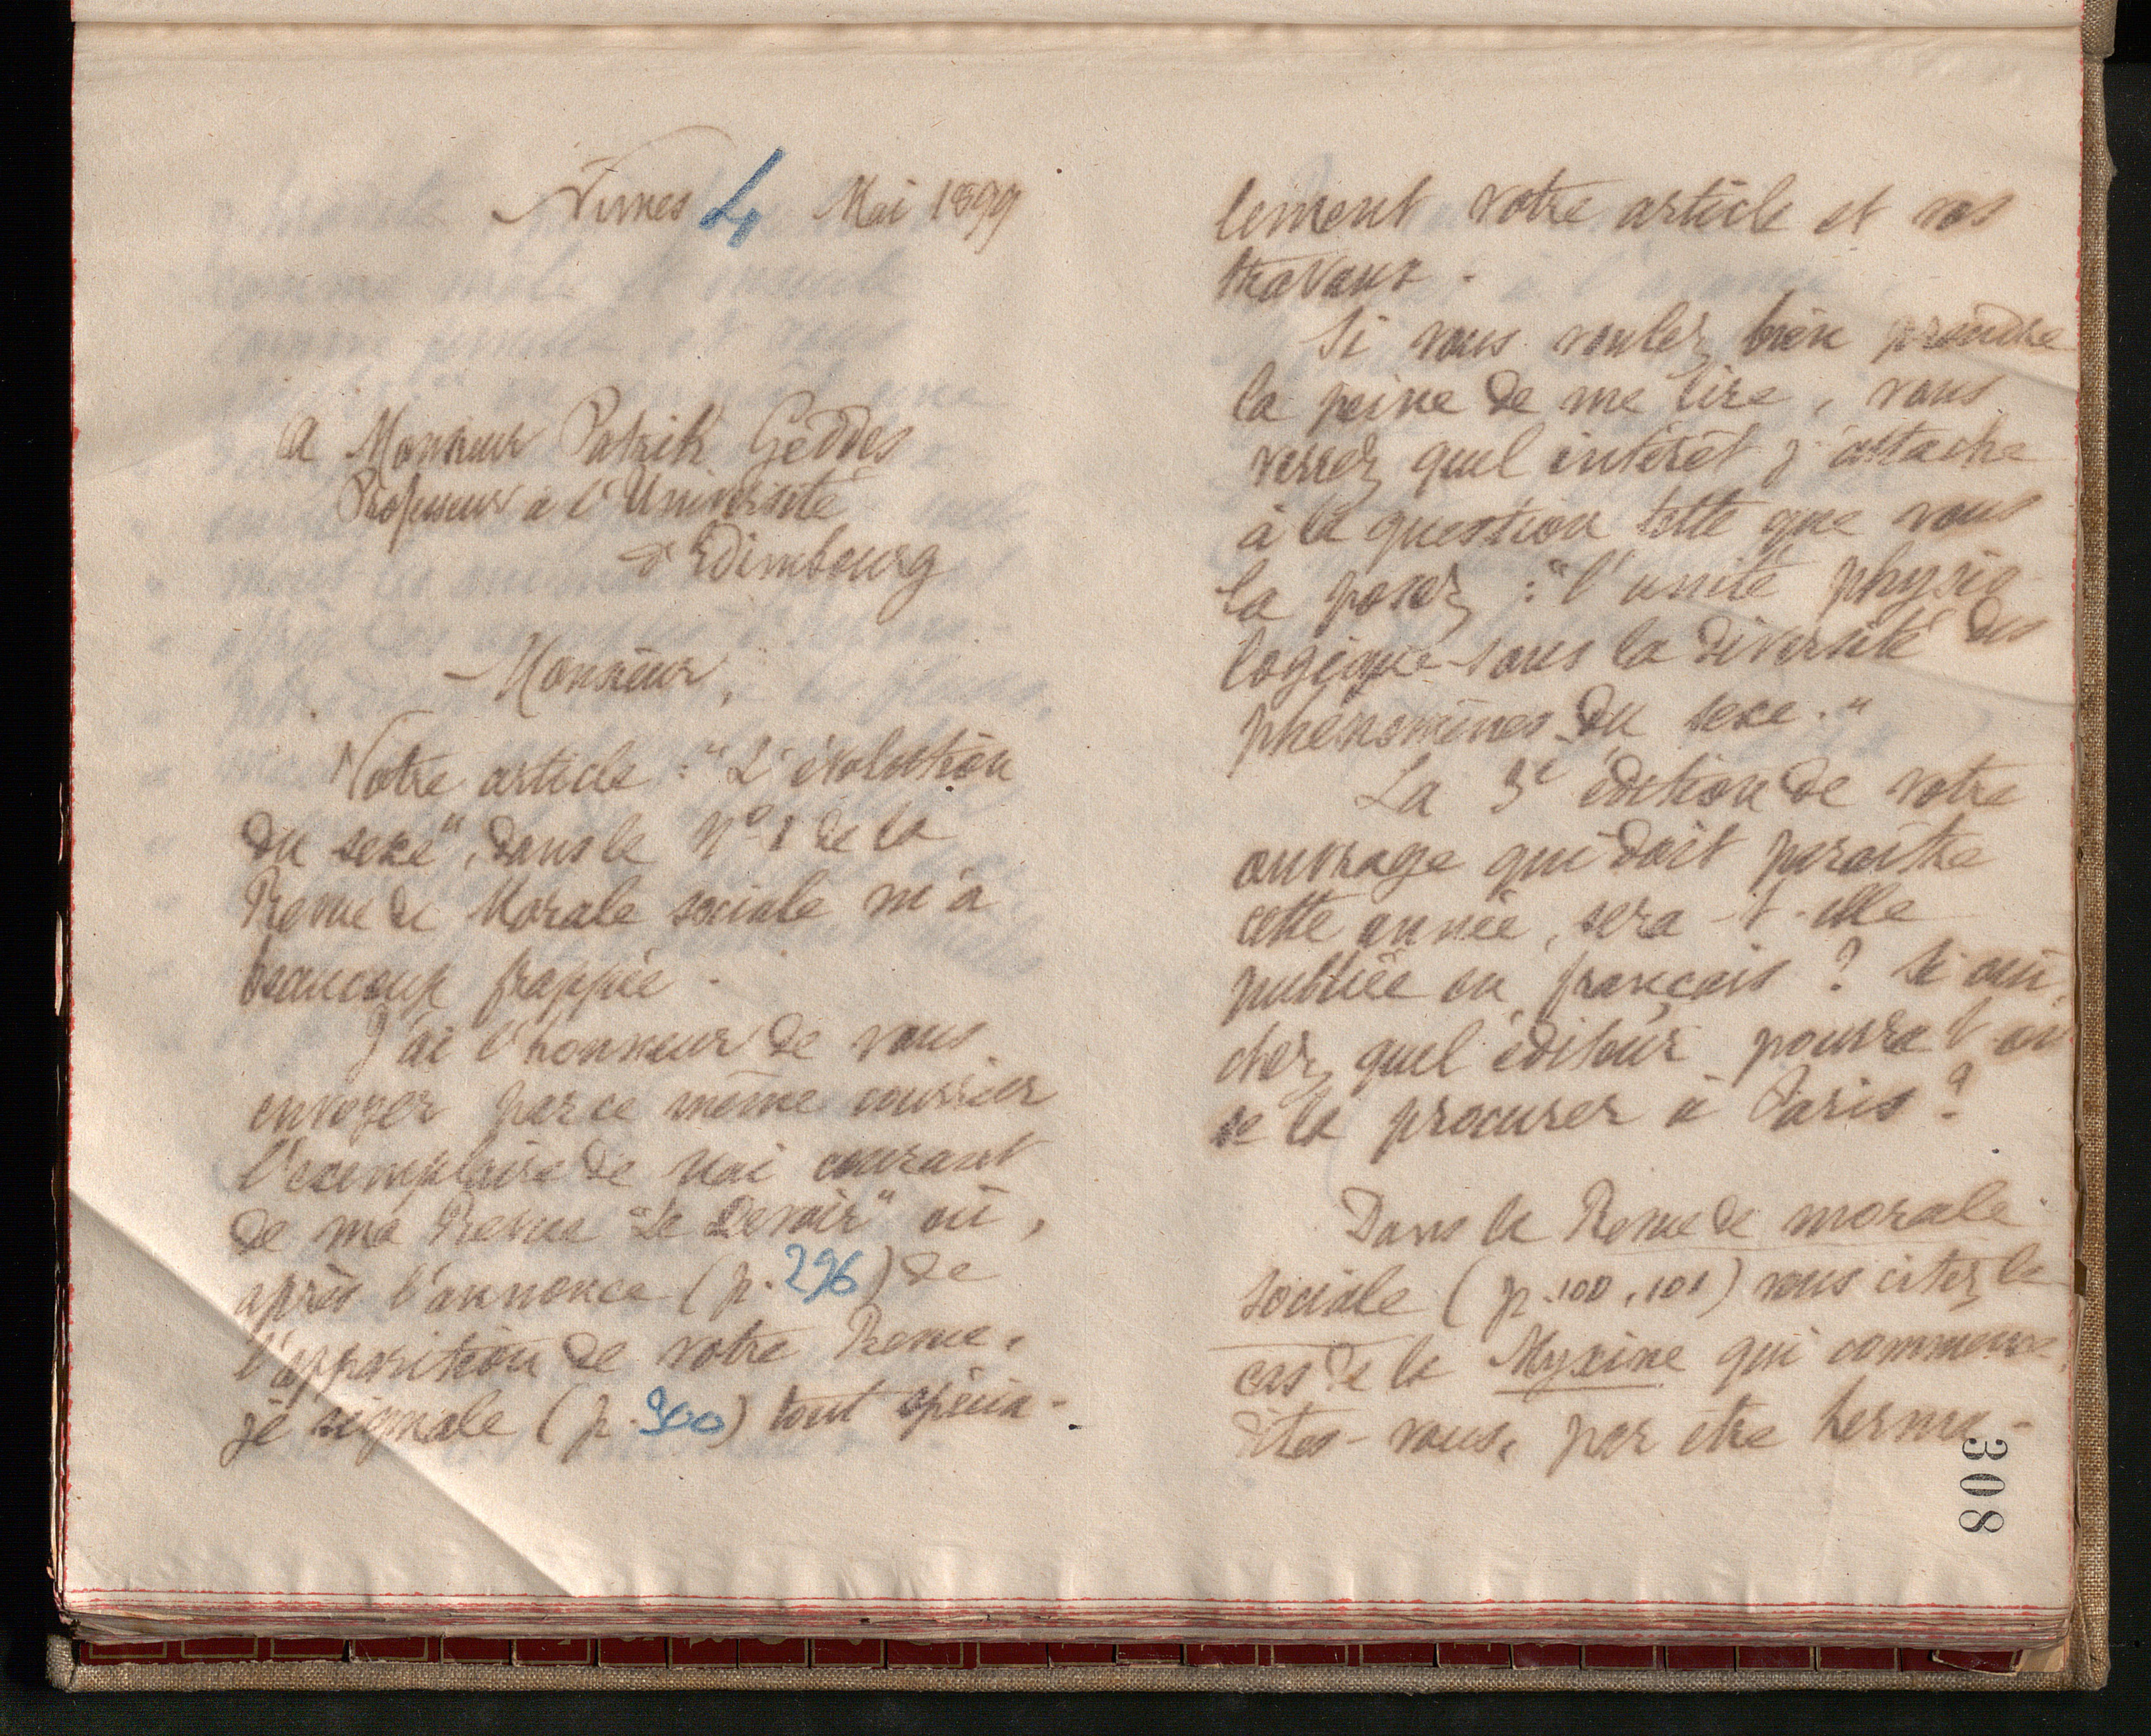 Nimes 4 Mai 1899
A Monsieur Patrik Geddes
Professeur à l'Université
d'Edimbourg
Monsieur,
Votre article : "L'évolution
du sexe", dans le Nº 1 de la
Revue de Morale sociale m'a
beaucoup frappée.
J'ai l'honneur de vous
envoyer par ce même courrier
l'exemplaire de Mai courant
de ma Revue "Le Devoir" où,
après l'annonce (p. 296) de
l'apparition de votre Revue,
je signale (p. 300) tout spécia-
lement votre article et vos
travaux.
Si vous voulez bien prendre
la peine de me lire, vous
verrez quel intérêt j'attache
à la question telle que vous
la posez : "l'unité physio-
logique sous la diversité des
phénomènes du sexe."
La 3e édition de votre
ouvrage qui doit paraître
cette année, sera-t-elle
publiée en français ? Si oui,
chez quel éditeur pourra t-on
se la procurer à Paris ?
Dans la Revue de morale
sociale (p. 100, 101) vous citez le
cas de la Myxine qui commence,
dites-vous, par être herma-
308